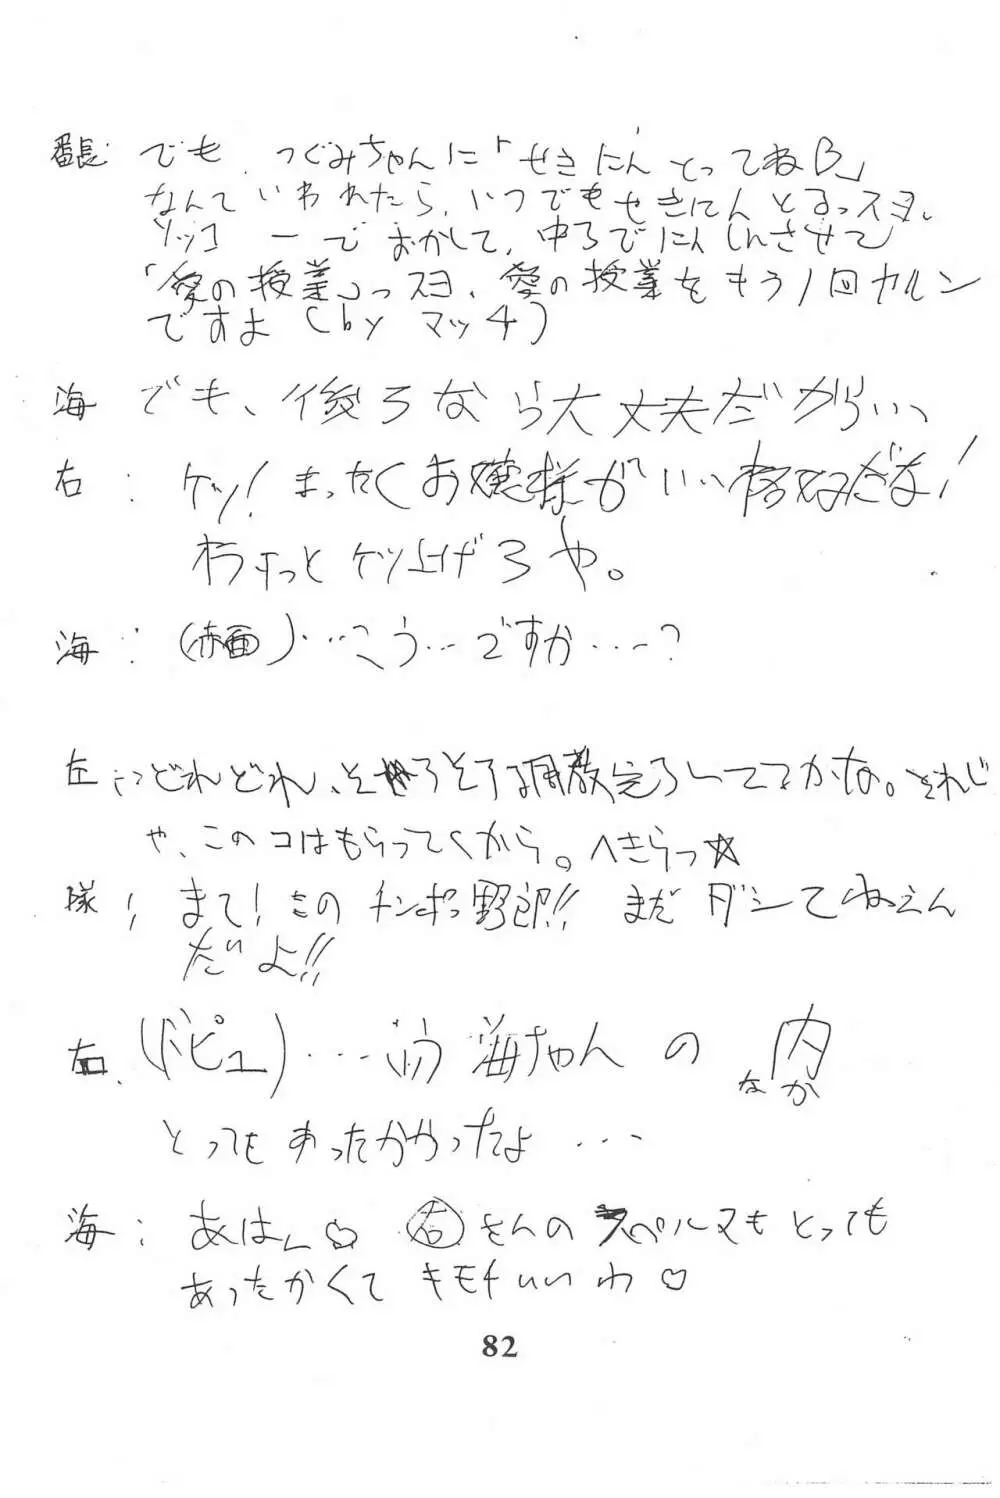 番長: でも、つぐみちゃんに「せきにんとってね♡」
なんていわれたら、いつでもせきにんとるっスヨ。
ソッコーでおかして、中ろでにんしんさせて
「愛の授業」っスヨ、愛の授業をもう1回ヤルン
ですよ(by マッチ)
海 でも、後ろなら大丈夫だからいい
右: ケッ!まったくお嬢様がいい格好だな!
オラもっとケツ上げろや。
海: (赤面)…こう…ですか…?
左: どれどれ、そろそろ調教完ろしててかな。それじ
ゃ、このコはもらってくから。へきらっ☆
隊! まて!このチンポ野郎!! まだダシてねぇん
だよ!!
右: (ドピュ)…海ちゃんの内
なか
とってもあったかかったよ…
海: あはん♡ 右さんのスペルマもとっても
あったかくてキモチいいわ♡
82